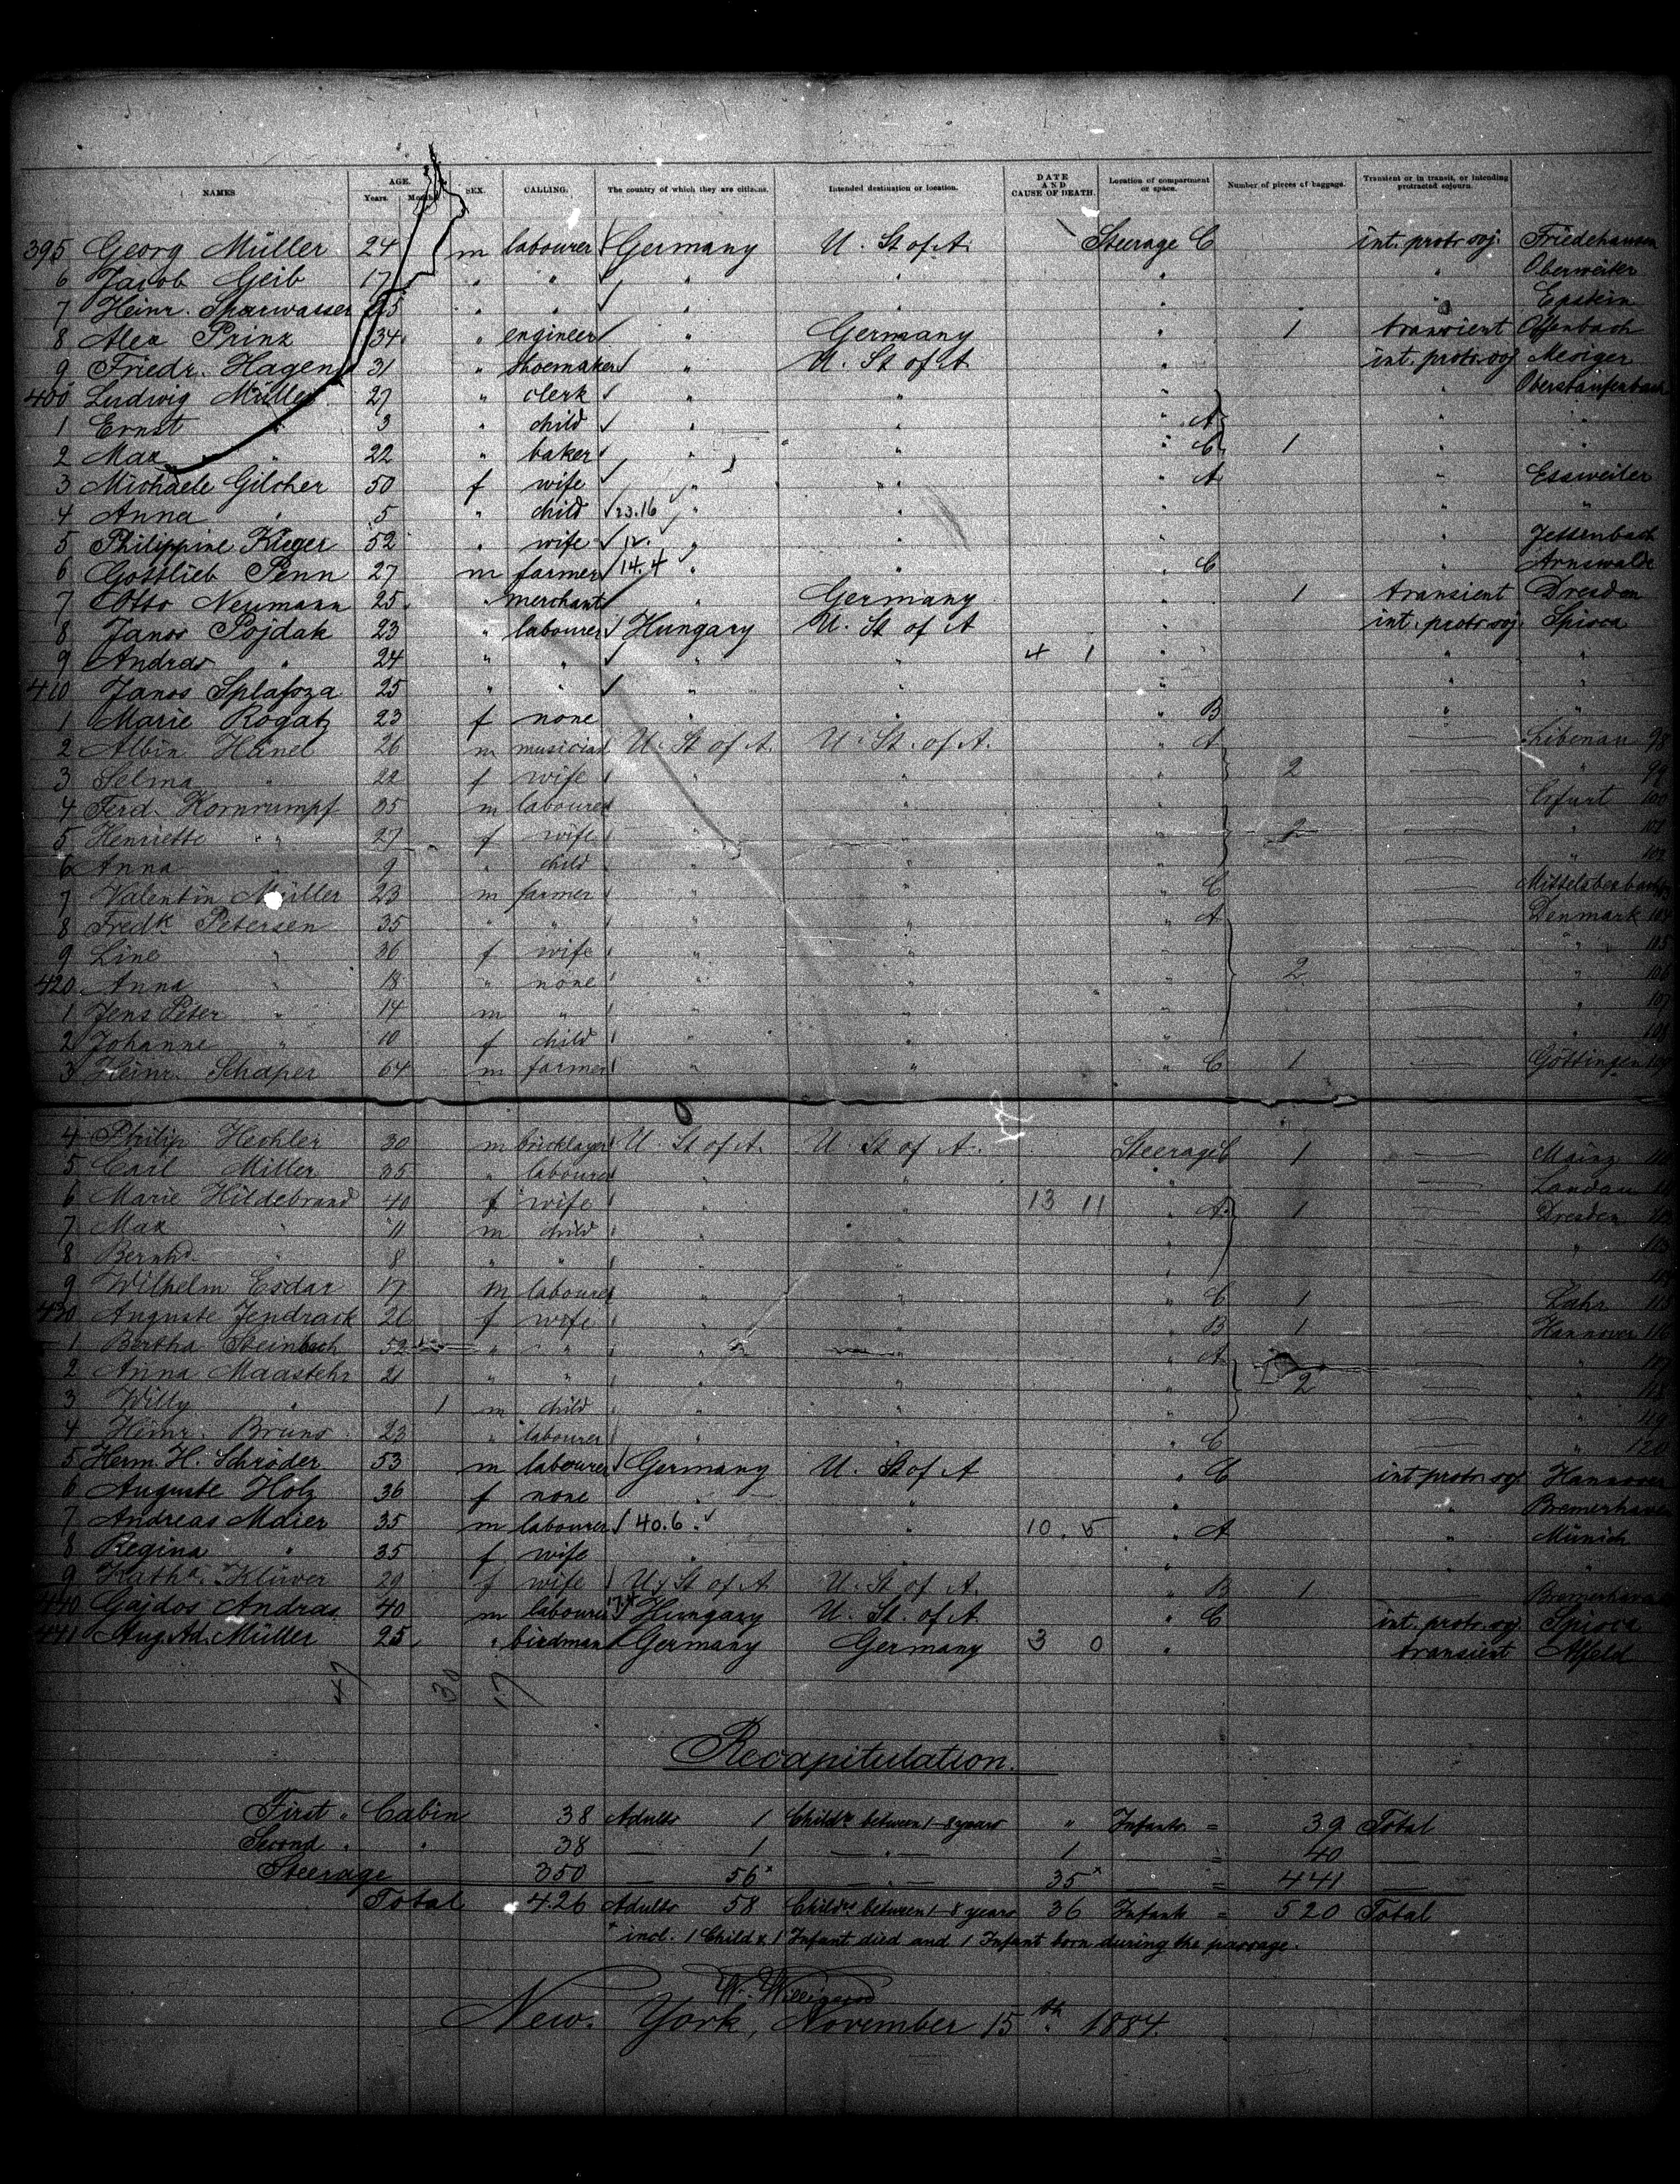 NAMES AGE. Years. Months SEX. CALLING. The country of which they are citizens. Intended destination or location. DATE AND CAUSE OF DEATH. Location of compartment or space. Number of pieces of baggage. Transient or in transit, or intending protracted sojourn.
395 Georg Müller 24 m labourer Germany U. St of A. Steerage C int. protr soj. Friedehausen
6 Jacob Geib 17 " " " " " " Oberweiler
7 Heinr. Sparwasser 25 " " " " " " Epstein
8 Alex Prinz 34 " engineer " Germany " 1 transient Offenbach
9 Friedr. Hagen 31 " shoemaker " U. St of A " int. protr. soj
400 Ludwig Müller 27 " clerk " " " " Oberstaufenbach
1 Ernst " 3 " child " " " A " "
2 Max " 22 " baker " " " C 1 " "
3 Michaele Gilcher 50 f wife " " " A " Essweiler
4 Anna " 5 " child 23.16 " " " " "
5 Philippine Kluger 52 " wife 12. " " " " Jettenbach
6 Gottlieb Penn 27 m farmer 14.4 " " " C " Arnswalde
7 Otto Neumann 25 " merchant " Germany " 1 transient Dresden
8 Janos Pojdak 23 " labourer Hungary U. St of A " int. protr soj. Spioca
9 Andras " 24 " " " " 4 1 " " "
410 Janos 25 " " " " " " "
1 Marie Rogatz 23 f none " " " B " "
2 Albin Hänel 26 m musician U. St of A. U. St. of A. " A — Libenau 98
3 Selma " 22 f wife " " " 2 — " 99
4 Ferd. Kornrumpf 35 m labourer " " " — Erfurt 100
5 Henriette " 27 f wife " " " 2 — " 101
6 Anna " 9 " child " " " — " 102
7 Valentin Müller 23 m farmer " " " C — Mittelsbexbach
8 Fredk Petersen 35 " " " " " A — Denmark 104
9 Line " 36 f wife " " " — " 105
420 Anna " 18 " none " " " 2 — " 106
1 Jens Peter " 14 m " " " " — " 107
2 Johanne " 10 f child " " " — " 108
3 Heinr. Schaper 64 m farmer " " " C 1 — Göttingen 109
4 Philip Hechler 30 m bricklayer U. St of A. U. St of A. Steerage C 1 — Mainz
5 Carl Miller 35 " labourer " " " — Landau
6 Marie Hildebrand 40 f wife " " 13 11 " A 1 — Dresden
7 Max " 11 m child " " " — "
8 Bernhd. " 8 " " " " "
9 Wilhelm Esdar 17 m labourer " " " C 1 — Lahr
430 Auguste Jendrack 26 f wife " " " B 1 — Hannover 116
1 Bertha Steinbach 52 " " " " " A — " 117
2 Anna Maastehr 21 " " " " " 2 — " 118
3 Willy " 1 m child " " " — " 119
4 Heinr. Bruns 23 " labourer " " " C — " 120
5 Herm. H. Schröder 53 m labourer Germany U. St of A " C int protr. soj Hannover
6 Auguste Holz 36 f none " " " " Bremerhaven
7 Andreas Maier 35 m labourer 40.6. " 10. 5 " A " Munich
8 Regina " 35 f wife " " " " "
9 Kathe. Klüver 29 f wife U. St of A U. St of A. " B 1 — Bremerhaven
440 Gajdos Andras 40 m labourer Hungary U. St. of A. " C int. protr. soj Spioca
441 Aug. Ad. Müller 25 " birdman Germany Germany 3 0 " transient Alfeld
47 30 17
Recapitulation.
First " Cabin 38 Adults 1 Childn between 1-8 years " Infants = 39 Total
Second " " 38 — 1 — " — 1 — = 40 —
Steerage 350 — 56* — " — 35* — = 441 —
Total 426 Adults 58 Childn between 1-8 years 36 Infants = 520 Total
* incl. 1 Child & 1 Infant died and 1 Infant born during the passage.
W. Willigerod
New York, November 15th 1884.